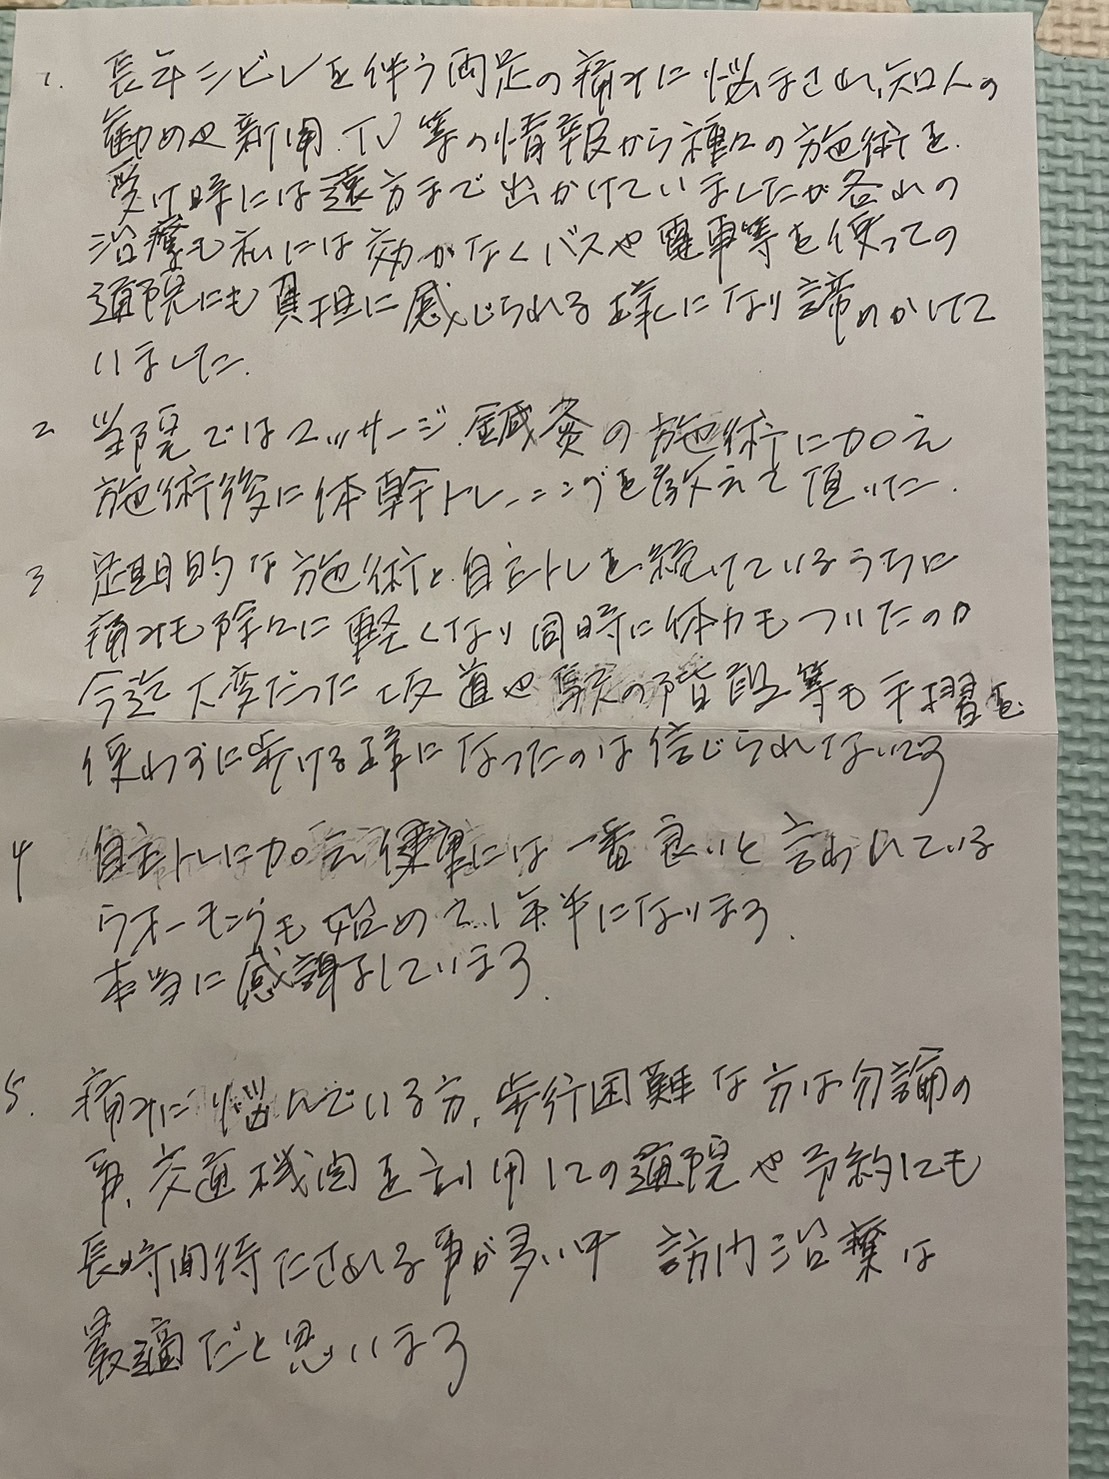 1. 長年シビレを伴う両足の痛みに悩まされ、知人の
勧めや新聞.TV等の情報から種々の施術を.
受け時には遠方まで出かけていましたが各れの
治療も私には効かなくバスや電車等を使っての
通院にも負担に感じられる様になり諦めかけて
いました.
2 当院ではマッサージ.鍼灸の施術に加え
施術後に体幹トレーニングを教えて頂いた.
3 定期的な施術と自主トレを続けているうちに
痛みも除々に軽くなり同時に体力もついたのか
今迄大変だった坂道や駅の階段等も手摺を
使わずに歩ける様になったのは信じられないです
4 自主トレに加え健康には一番良いと言われている
ウォーキングも始めて1年半になります.
本当に感謝しています.
5. 痛みに悩んでいる方,歩行困難な方は勿論の
事、交通機関を利用しての通院や予約にも
長時間待たされる事が多い中 訪問治療は
最適だと思います